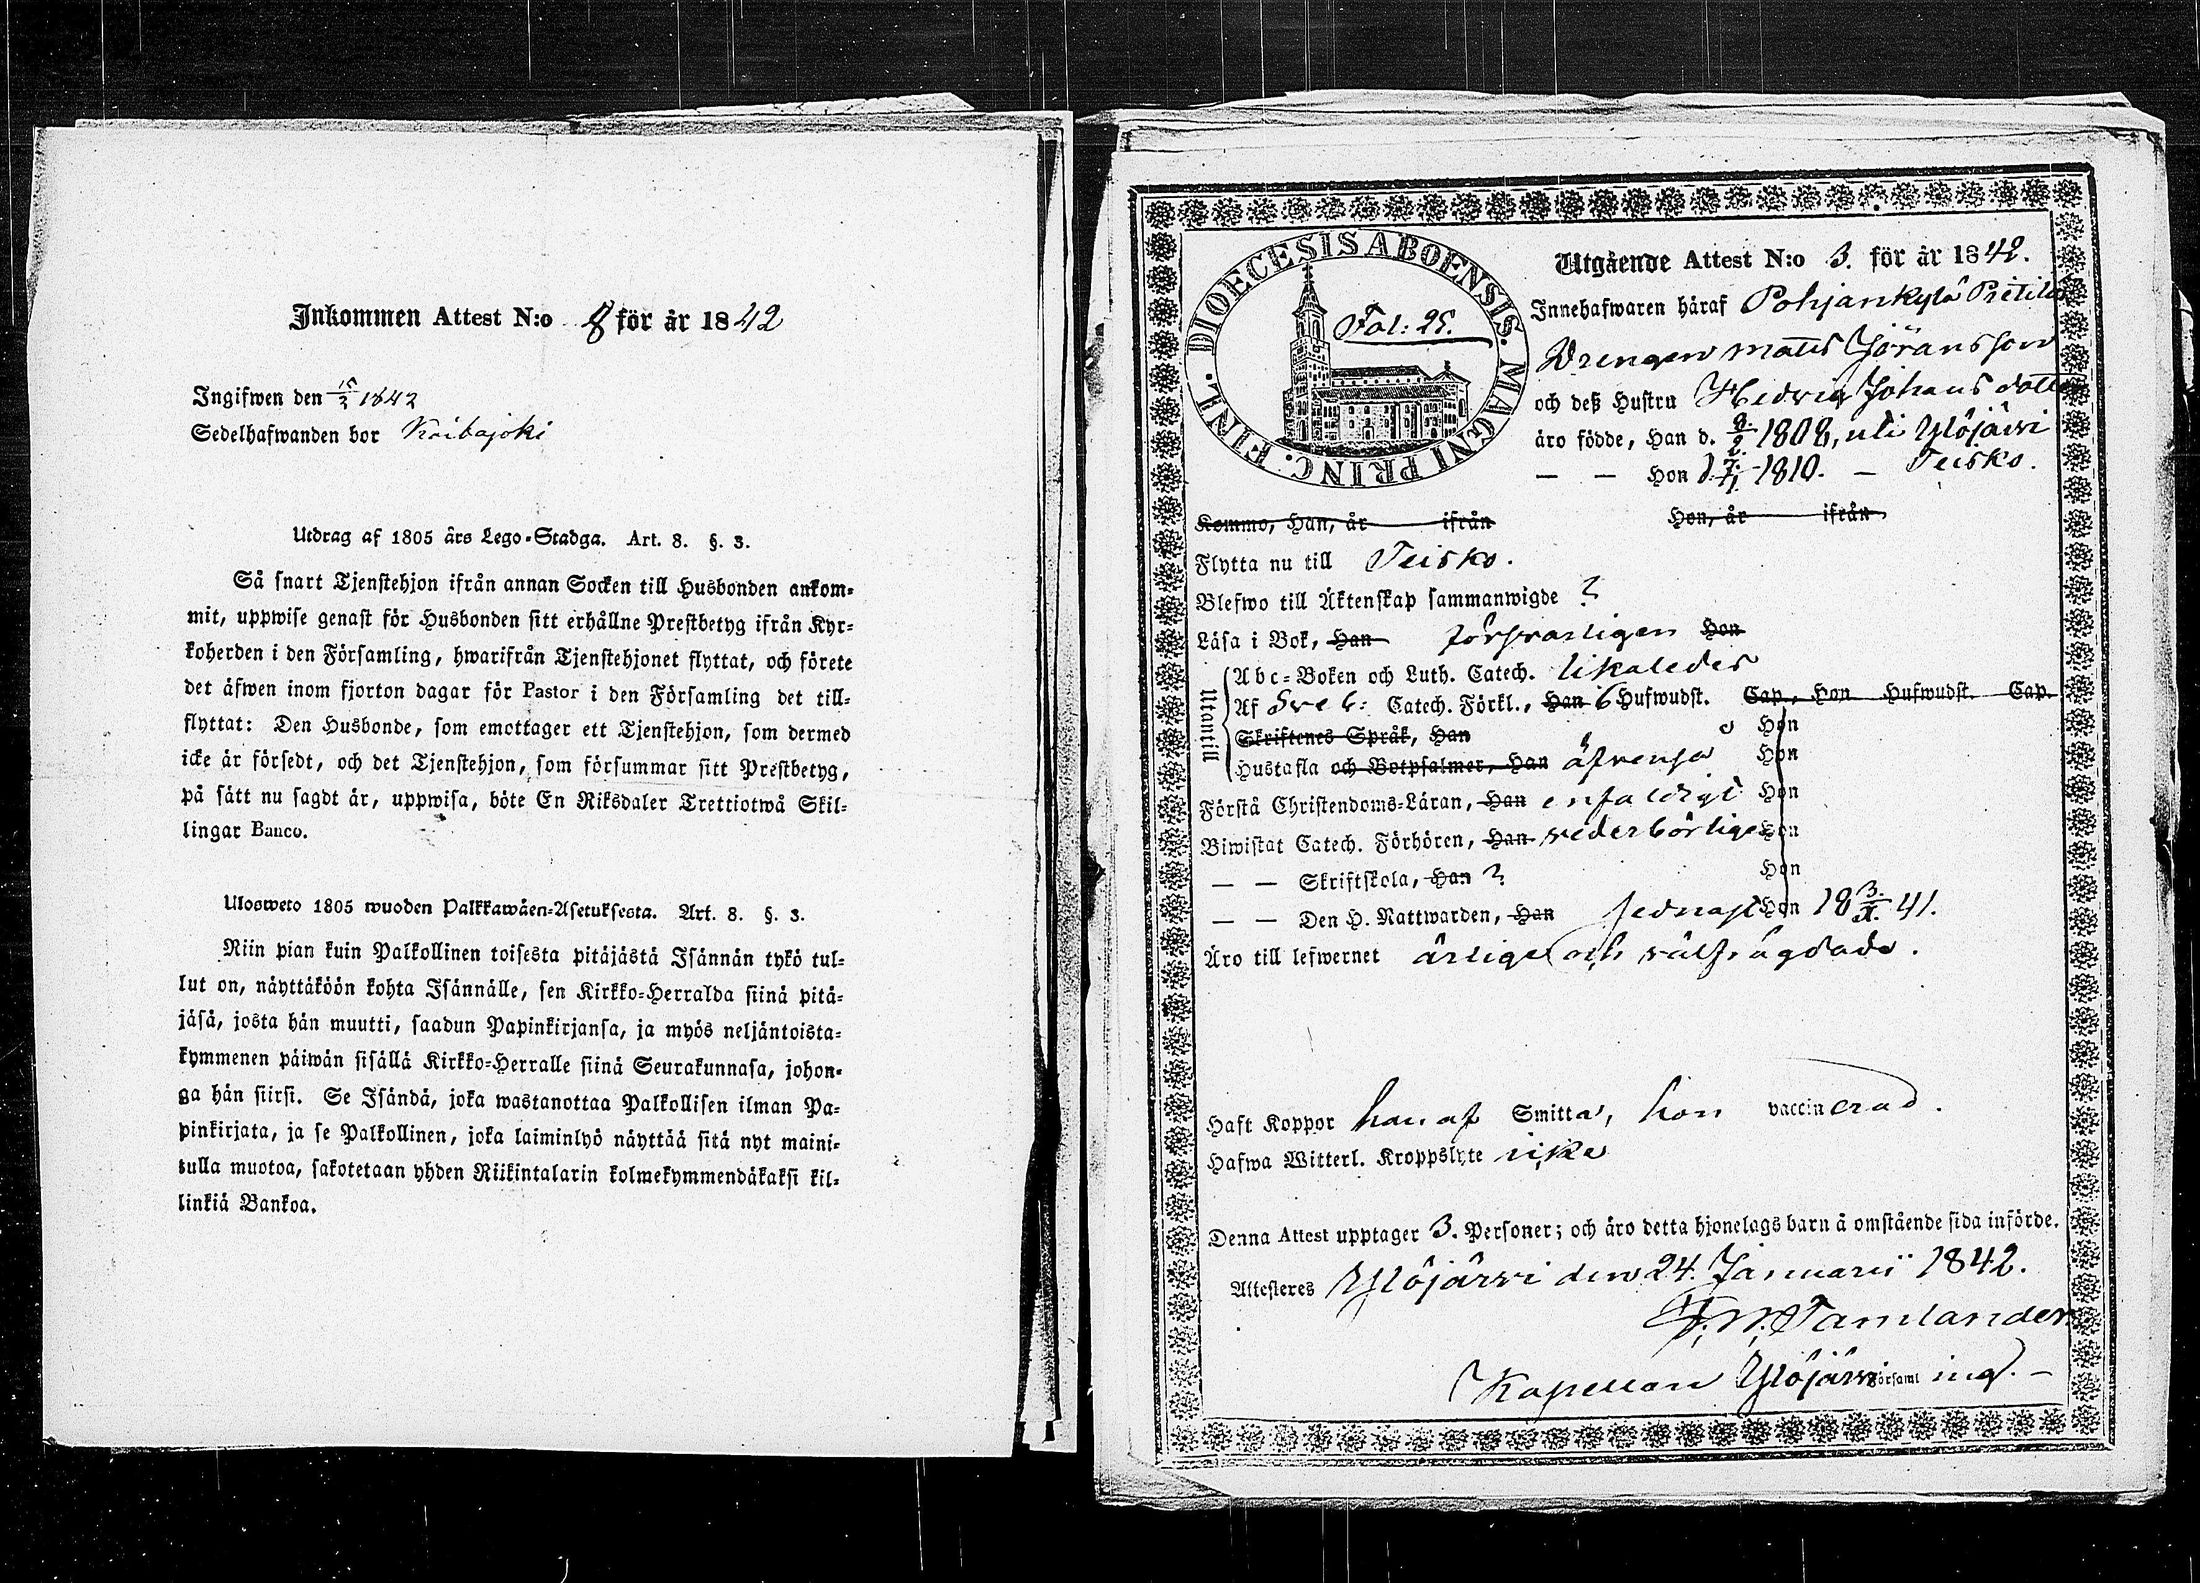 Inkommen Attest N:o 8 för år 1842
Ingifwen den 15/2 1842
Sedelhafwanden bor Keihajoki
Utdrag af 1805 års Lego-Stadga. Art. 8. §. 3.
Så snart Tjenstehjon ifrån annan Socken till Husbonden ankom-
mit, uppwise genast för Husbonden sitt erhållne Prestbetyg ifrån Kyr-
koherden i den Församling, hwarifrån Tjenstehjonet flyttat, och förete
det äfwen inom fjorton dagar för Pastor i den Församling det till-
flyttat: Den Husbonde, som emottager ett Tjenstehjon, som dermed
icke är försedt, och det Tjenstehjon, som försummar sitt Prestbetyg,
på sätt nu sagdt är, uppwisa, böte En Riksdaler Trettiotwå Skil-
lingar Banco.
Ulosweto 1805 wuoden Palkkawäen-Asetuksesta. Art. 8. §. 3.
Niin pian kuin Palkollinen toisesta pitäjästä Isännän tykö tul-
lut on, näyttäköön kohta Isännälle, sen Kirkko-Herralda siinä pitä-
jäsä, josta hän muutti, saadun Papinkirjansa, ja myös neljäntoista-
kymmenen päiwän sisällä Kirkko-Herralle siinä Seurakunnasa, johon-
ga hän siirsi. Se Isändä, joka wastanottaa Palkollisen ilman Pa-
pinkirjata, ja se Palkollinen, joka laiminlyö näyttää sitä nyt maini-
tulla muotoa, sakotetaan yhden Riikintalarin kolmekymmendäkaksi kil-
linkiä Bankoa.
DIOECESIS ABOENSIS. MAGNI PRINC. FINL.
Fol: 25.
Utgående Attest N:o 3. för år 1842.
Innehafwaren häraf Pohjankylä Pietilä
Drengen Matts Jöransson
och deß Hustru Hedvig Johansdotter
äro födde, Han d. 8/2 1808, uti Ylöjärvi
— — Hon d. 7/1 1810. — Teisko.
Kommo, Han, år ifrån Hon, år ifrån
Flytta nu till Teisko.
Blefwo till Äktenskap sammanwigde ?
Läsa i Bok, Han försvarligen Hon
Utantill
Abc-Boken och Luth. Catech. likaledes
Af Sveb: Catech. Förkl., Han 6 Hufwudst. Cap., Hon Hufwudst. Cap.
Skriftenes Språk, Han Hon
Hustafla och Botpsalmer, Han äfvenså Hon
Förstå Christendoms-Läran, Han enfaldigt Hon
Biwistat Catech. Förhören, Han vederbörligen Hon
— — Skriftskola, Han ? Hon
— — Den H. Nattwarden, Han sednast Hon 18 3/X. 41.
Äro till lefwernet ärlige och välfrägdade.
Haft Koppor han af Smitta, hon vaccinerad.
Hafwa Witterl. Kroppslyte icke
Denna Attest upptager 3. Personer; och äro detta hjonelags barn å omstående sida införde.
Attesteras Ylöjärvi den 24. Januarii 1842.
Tamlander
Kapellan Ylöjärvi Församl ing. —